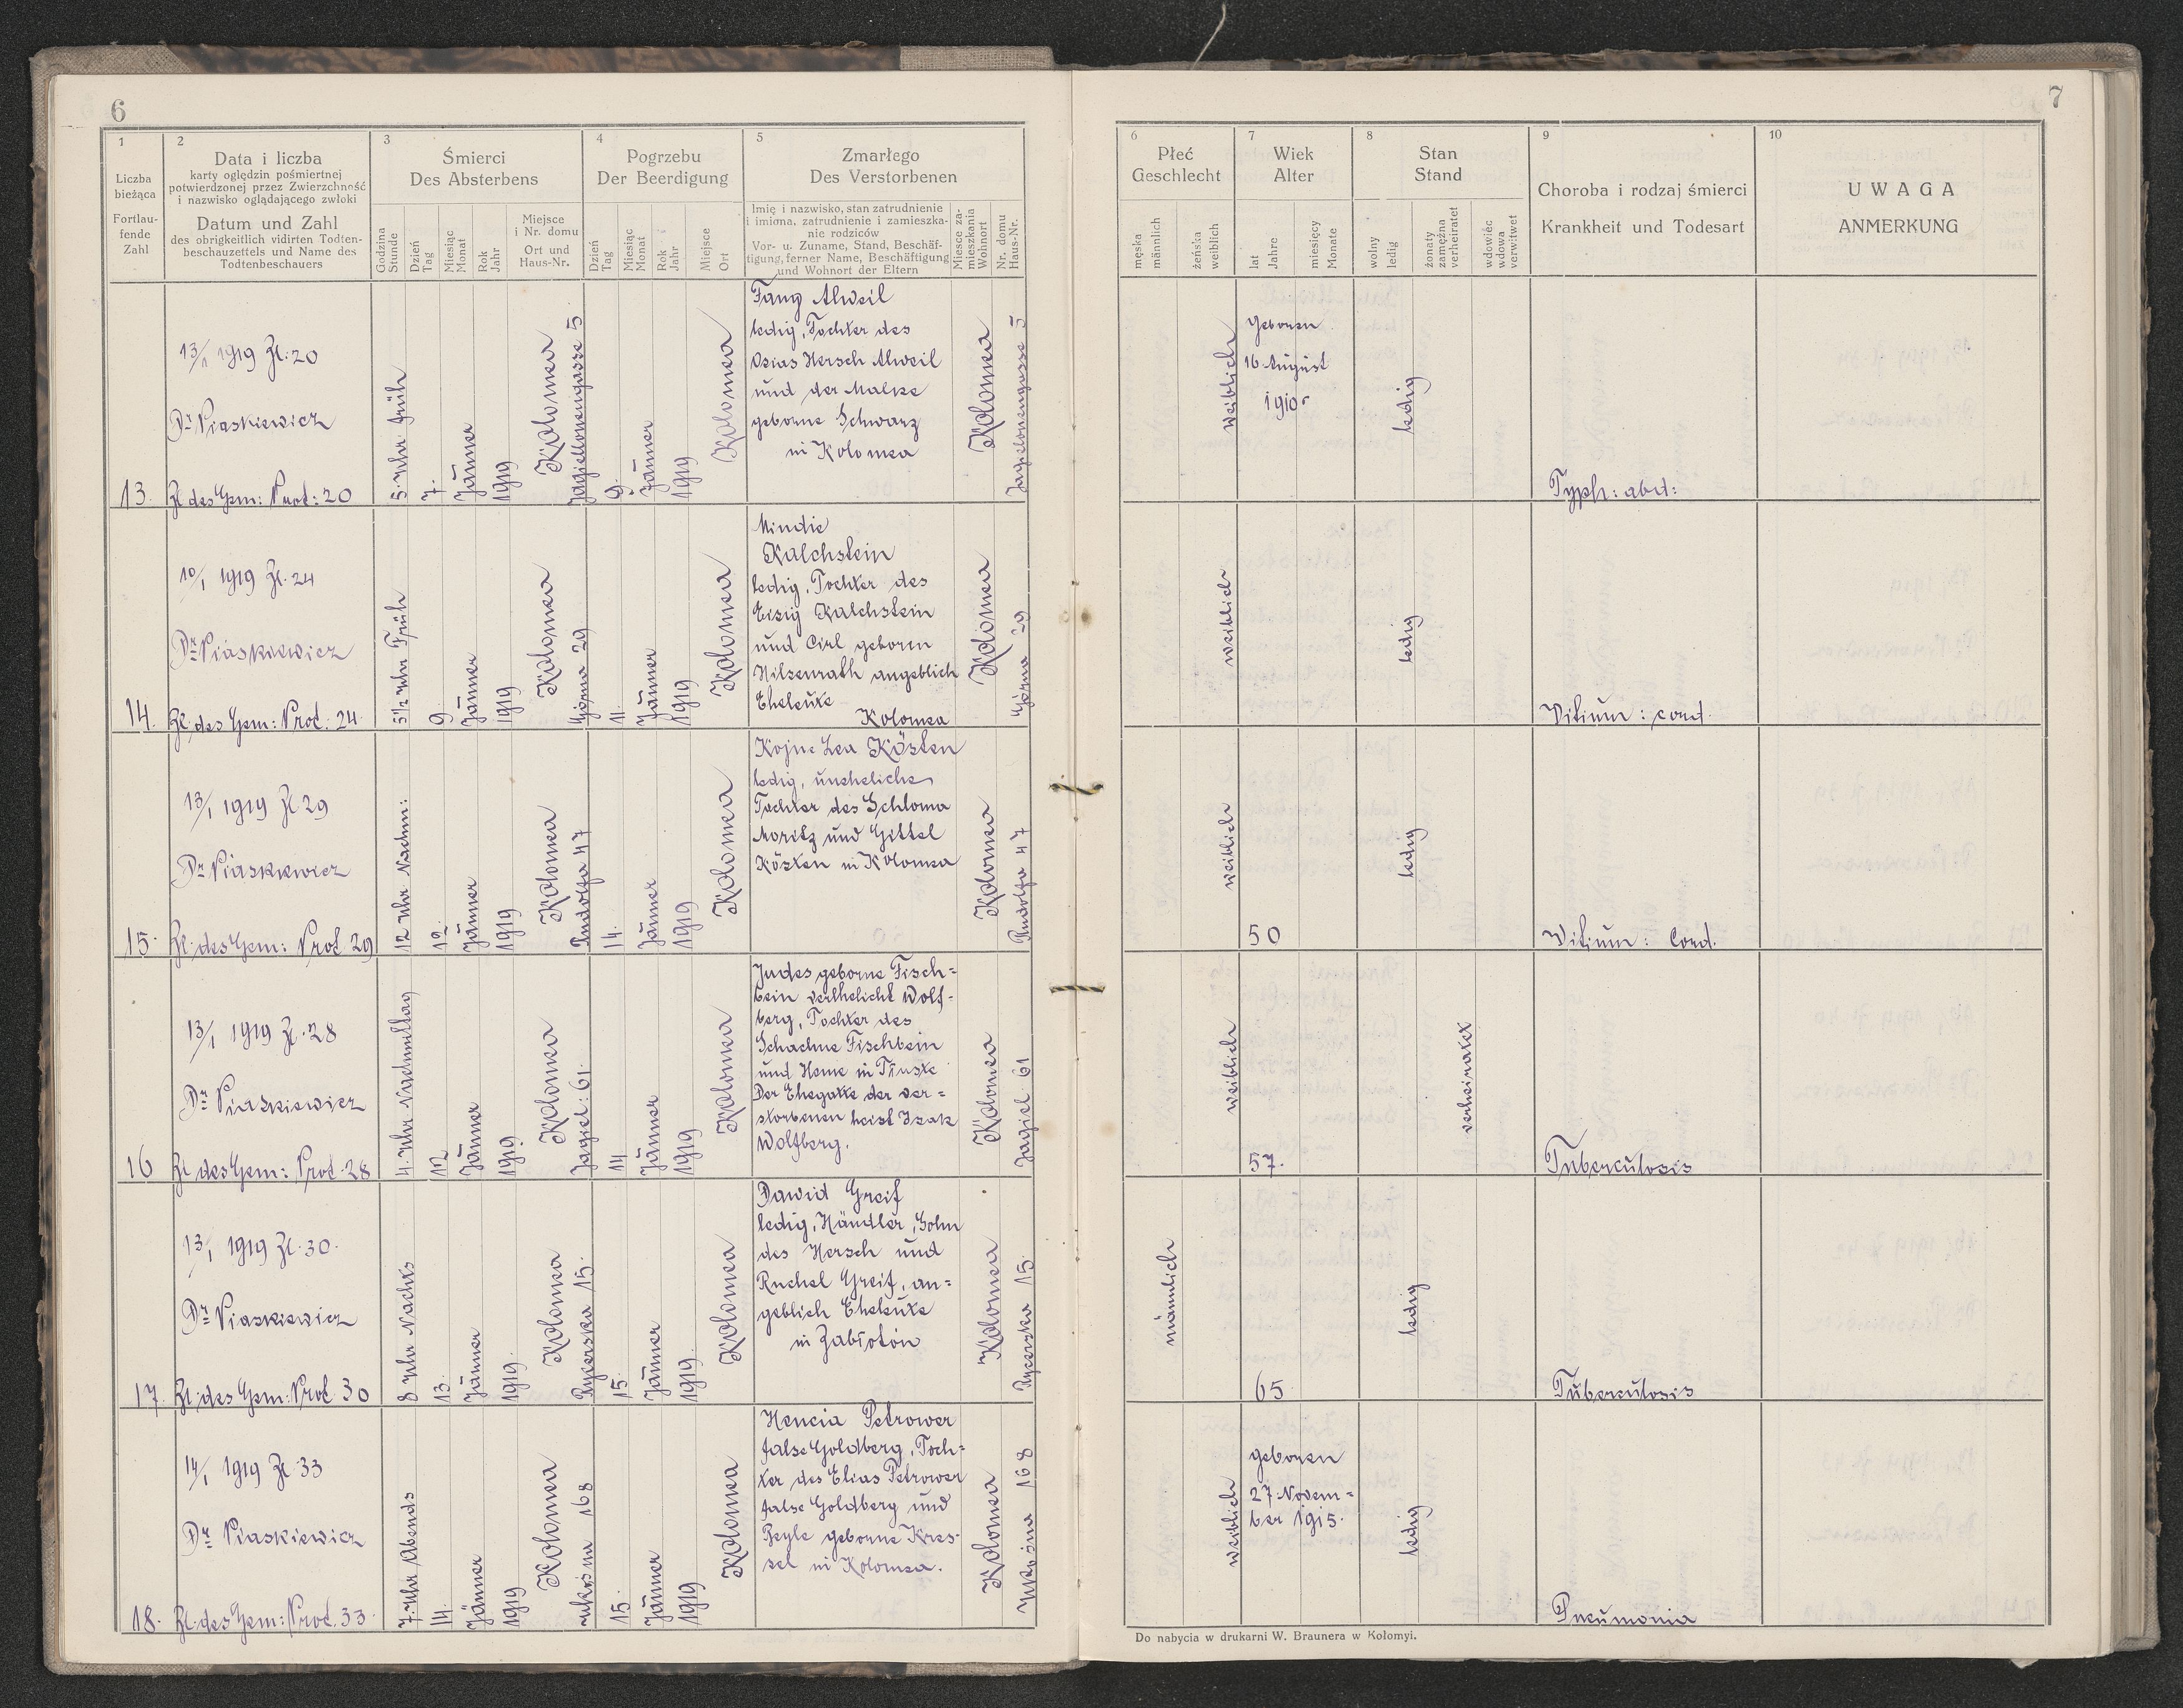 6
1
Liczba
bieżąca
Fortlau-
fende
Zahl
2
Data i liczba
karty oględzin pośmiertnej
potwierdzonej przez Zwierzchność
i nazwisko oglądającego zwłoki
Datum und Zahl
des obrigkeitlich vidirten Todten-
beschauzettels und Name des
Todtenbeschauers
3
Śmierci
Des Absterbens
Godzina
Stunde
Dzień
Tag
Miesiąc
Monat
Rok
Jahr
Miejsce
i Nr. domu
Ort und
Haus-Nr.
4
Pogrzebu
Der Beerdigung
Dzień
Tag
Miesiąc
Monat
Rok
Jahr
Miejsce
Ort
5
Zmarłego
Des Verstorbenen
Imię i nazwisko, stan zatrudnienie
i imiona, zatrudnienie i zamieszka-
nie rodziców
Vor- u. Zuname, Stand, Beschäf-
tigung, ferner Name, Beschäftigung
und Wohnort der Eltern
Miesce za-
mieszkania
Wohnort
Nr. domu
Haus-Nr.
7
6
Płeć
Geschlecht
męska
männlich
żeńska
weiblich
7
Wiek
Alter
lat
Jahre
miesięcy
Monate
8
Stan
Stand
wolny
ledig
żonaty
zamężna
verheiratet
wdowiec
wdowa
verwitwet
9
Choroba i rodzaj śmierci
Krankheit und Todesart
10
UWAGA
ANMERKUNG
13.
13/1 1919 Zl. 20
Dr Piaskiewicz
Zl des Gem: Prot: 20
5. Uhr früh
7.
Jänner
1919
Kolomea
Jagiellonengasse 5
9.
Jänner
1919
Kolomea
Fany Alweil
ledig, Tochter des
Osias Hersch Alweil
und der Malke
geborne Schwarz
in Kolomea
Kolomea
Jagielonengasse 5
weiblich
Geboren
16. August
1910
ledig
Typh: abd:
14.
10/1 1919 Zl. 24
Dr Piaskiewicz
Zl. des Gem: Prot. 24
5 1/2 Uhr Früh
9
Jänner
1919
Kolomea
Górna 29
11.
Jänner
1919
Kolomea
Mindie
Kalchstein
ledig, Tochter des
Eisig Kalchstein
und Cirl geboren
Hilsenrath angeblich
Eheleute
Kolomea
Kolomea
Górna 29
weiblich
ledig
Vitium: cord.
15.
13/1 1919 Zl. 29
Dr Piaskiewicz
Zl. des Gem: Prot. 29
12 Uhr Nachm:
12.
Jänner
1919
Kolomea
Rudolfa 47
14.
Jänner
1919
Kolomea
Kojne Lea Kösten
ledig, uneheliche
Tochter des Schloma
Moritz und Gittel
Kösten in Kolomea
Kolomea
Rudolfa 47
weiblich
50
ledig
Vitium: Cord.
16
13/1 1919 Zl. 28
Dr Piaskiewicz
Zl des Gem: Prot. 28
4. Uhr Nachmittag
12
Jänner
1919
Kolomea
Jagiel: 61.
14
Jänner
1919
Kolomea
Judes geborne Fisch-
bein verehelicht Wolf-
berg, Tochter des
Schachne Fischbein
und Hene in
Der Ehegatte der ver-
storbenen heist Isak
Wolfberg.
Kolomea
Jagiel 61
weiblich
57.
verheiratet
Tuberculosis
17.
13/1 1919 Zl. 30.
Dr Piaskiewicz
Zl. des Gem: Prot. 30
8 Uhr Nachts
13.
Jänner
1919.
Kolomea
Rycerska 15.
15.
Jänner
1919.
Kolomea
Dawid Greif
ledig, Händler, Sohn
des Hersch und
Ruchel Greif, an-
geblich Eheleute
in Zabłotów
Kolomea
Rycerska 15.
männlich
65
ledig
Tuberculosis
18.
14/1 1919 Zl. 33
Dr Piaskiewicz
Zl. des Gem: Prot. 33
7. Uhr Abends
14.
Jänner
1919
Kolomea
168
15.
Jänner
1919
Kolomea
Hencia Petrower
false Goldberg, Toch-
ter des Elias Petrower
false Goldberg und
Beyle geborne Kres-
sel in Kolomea.
Kolomea
168
weiblich
geboren
27. Novem-
ber 1915.
ledig
Pneumonia
Do nabycia w drukarni W. Braunera w Kołomyi.